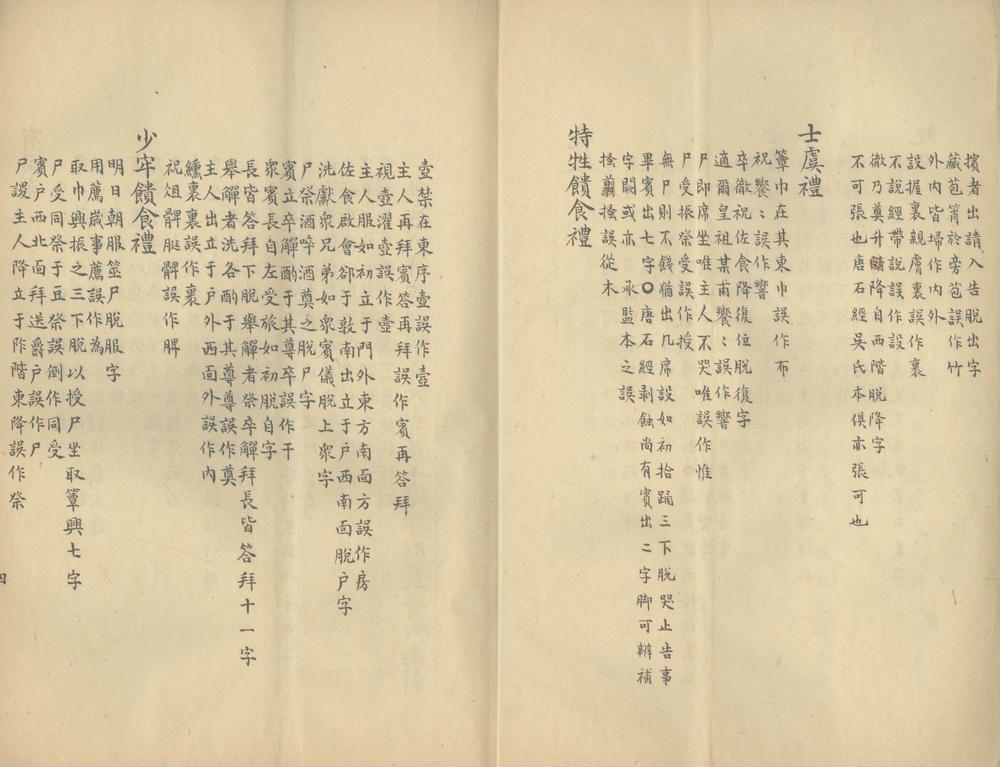 擯者出請入告脫出字
藏苞筲於旁苞誤作竹
外內皆埽作內外
設握裏親膚裏誤作裹
不說絰帶說誤作設
徹乃奠升降自西階脫降字
不可張也唐石經吳氏本俱亦張可也
士虞禮
簞巾在其東巾誤作布
祝饗〻誤作響
卒徹祝佐食降復位脫復字
適爾皇祖某甫饗〻誤作響
尸即席坐唯主人不哭唯誤作惟
尸受振祭受誤作授
無尸則不餞猶出几席設如初拾踊三下脫哭止告事
畢賓出七字〇唐石經剥蝕尚有賓出二字脚可辨補
字闕或亦承監本之誤
掻翦掻誤從木
特牲饋食禮
壺禁在東序壺誤作壼
主人再拜賓答再拜誤作賓再答拜
視壺濯壺誤作壼
主人服如初立于門外東方南面方誤作房
佐食啟會卻于敦南出立于户西南面脫户字
洗獻衆兄弟如衆賓儀脫上衆字
尸祭酒啐酒奠之脫尸字
賓立卒觶酌于其尊卒誤作干
衆賓長自左受旅如初脫自字
長皆答拜下脫舉觶者祭卒觶拜長皆答拜十一字
舉觶者洗各酌于其尊尊誤作奠
主人出立于户外西面外誤作内
纁裏裏誤作裹
祝俎髀脡髀誤作脾
少牢饋食禮
明日朝服筮尸脫服字
用薦歲事薦誤作為
取巾興振之三下脫以授尸坐取簞興七字
尸受同祭于豆祭誤倒作同受
賓户西北面拜送爵户誤作尸
尸謖主人降立于阼階東降誤作祭
四